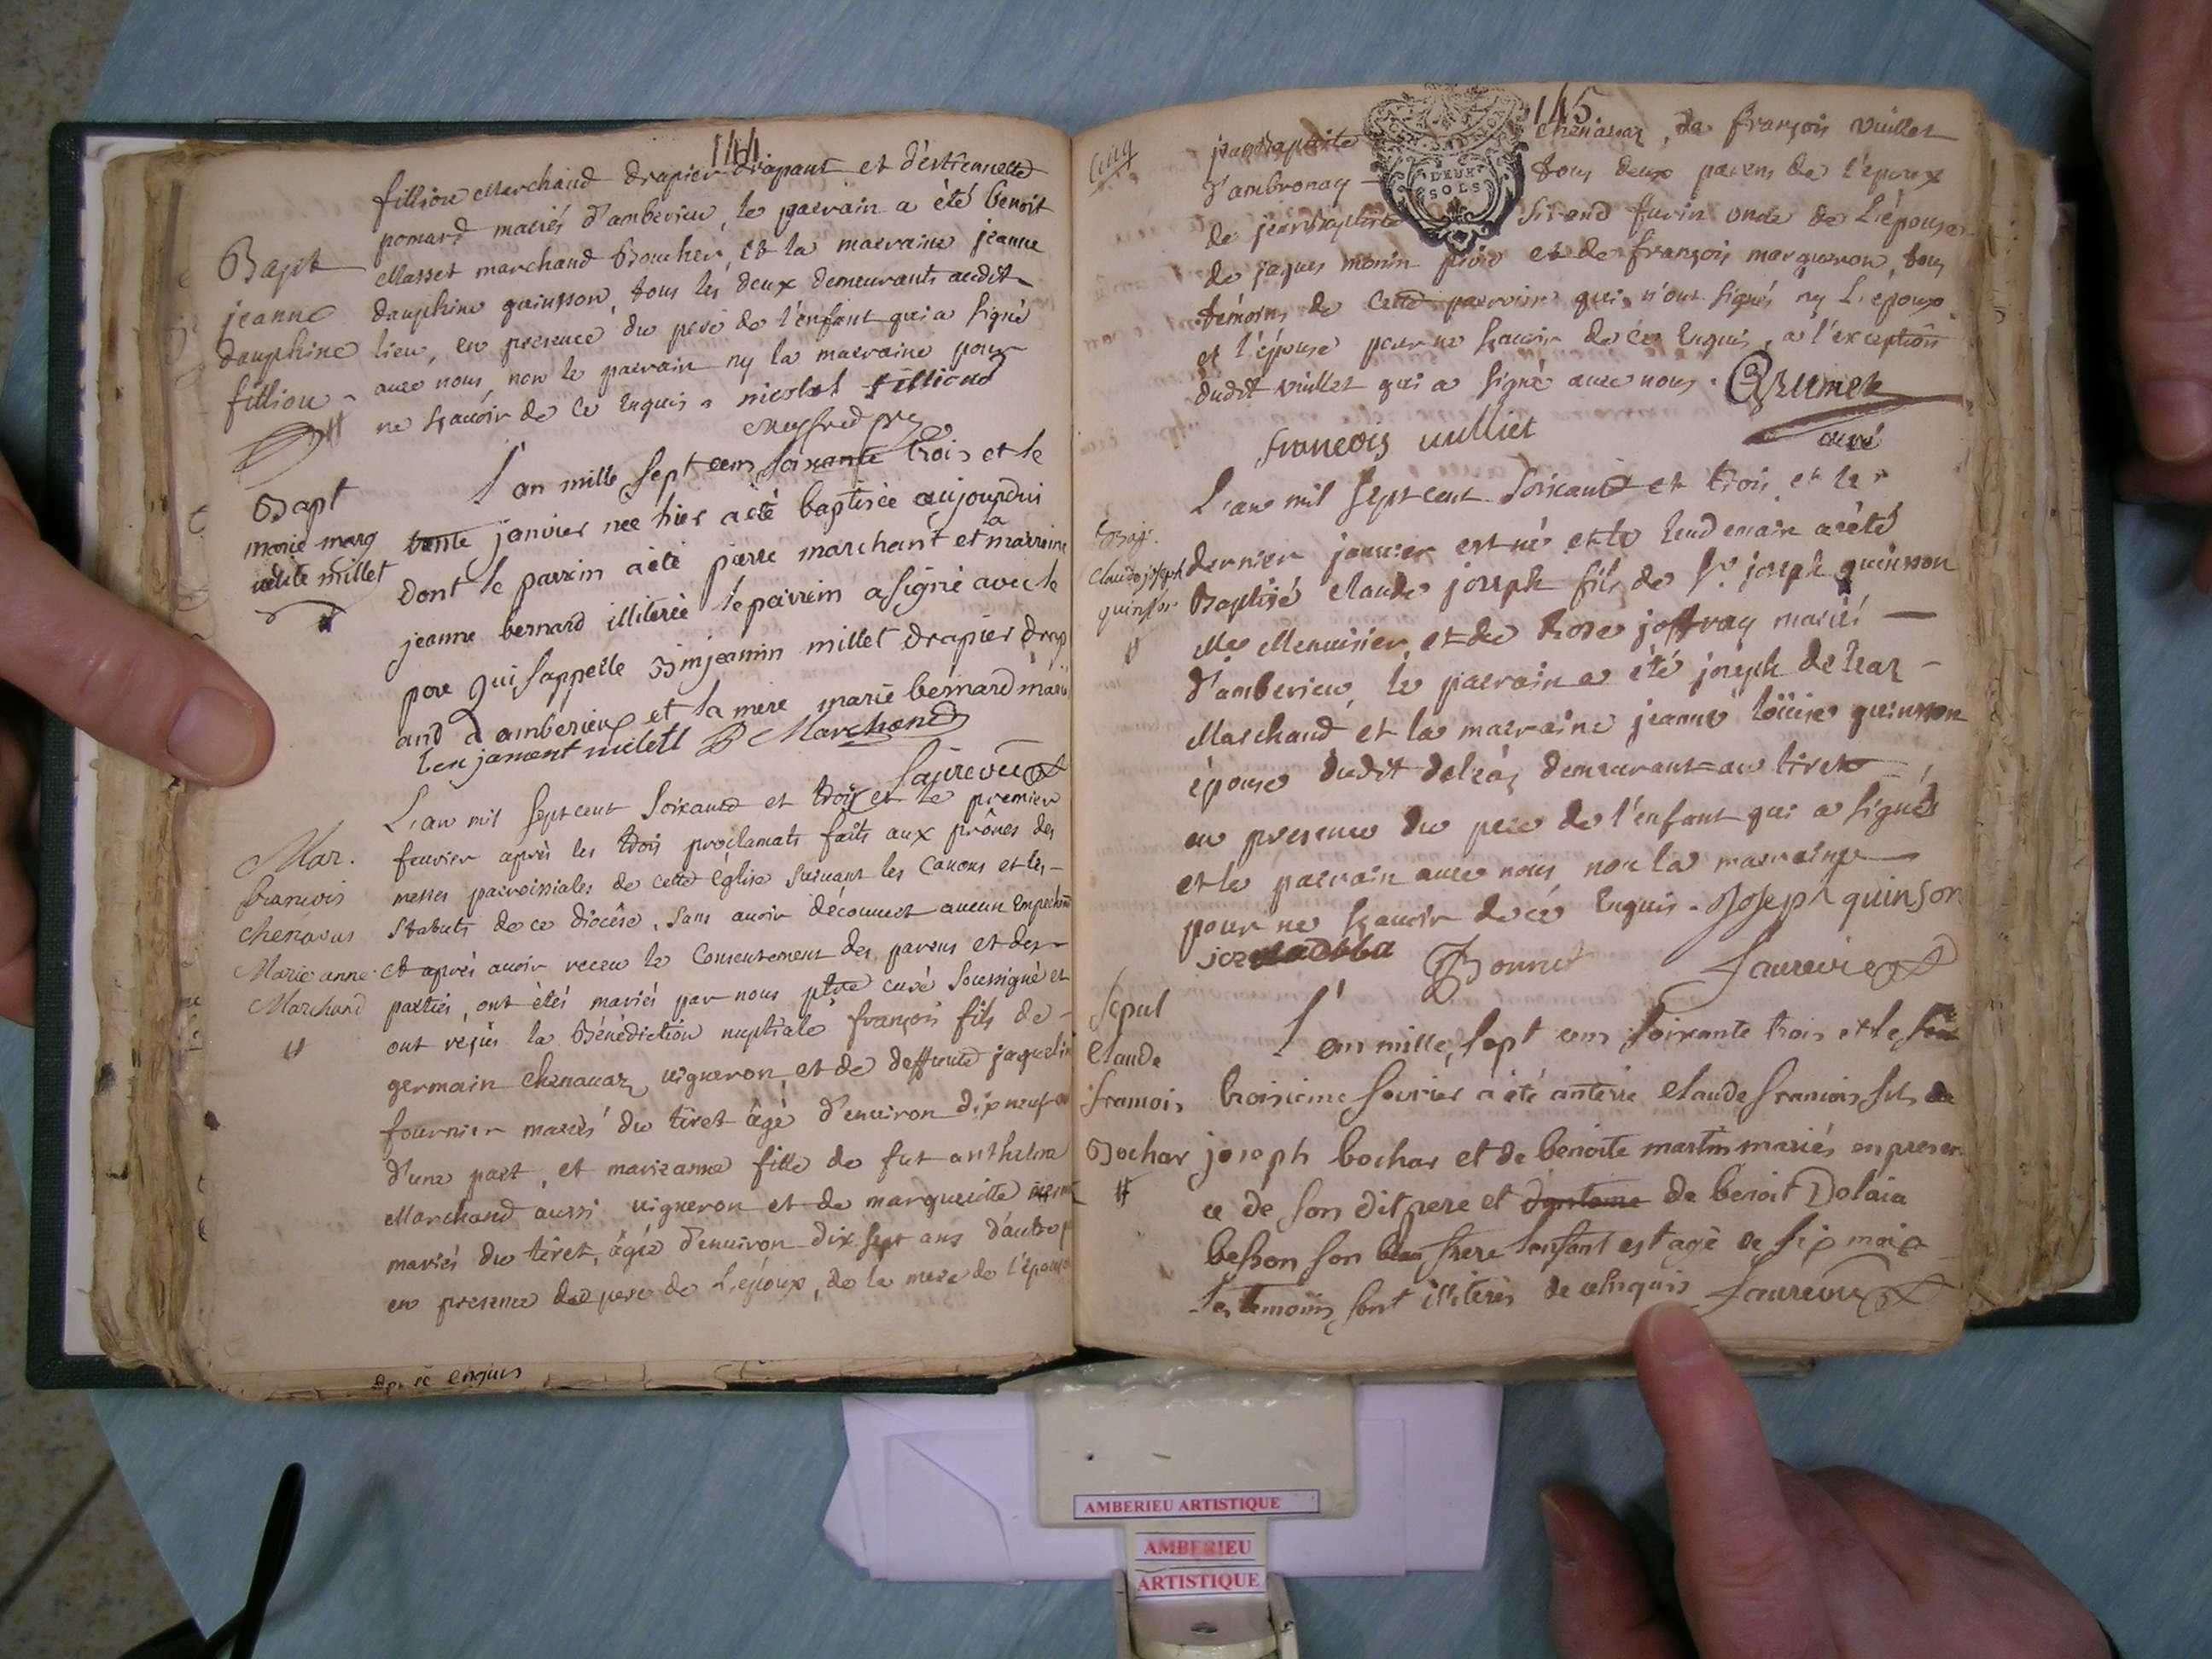 144
fillion Marchand drapier drapant et d'estiennette
pomard mariés d'amberieu, le parrain a été benoit
Masset marchand Boucher, et la marraine jeanne
dauphine quinson, tous les deux demeurants audit
lieu, en presence du pere de l'enfant qui a signé
avec nous, non le parrain ny la marraine pour
ne sçavoir de ce enquis. nicolat filliond
Bapt
jeanne
dauphine
fillion
L'an mille sept cens soixante trois et le
trente janvier nee hier a été baptisée aujourdui
dont le parrin a été pierre marchant et la marreine
jeanne bernard illiterée le parrein a signé avec le
pere qui sappelle Binjeamin millet drapier drap
and d'amberieux et la mere marie bernard marié
benjament milett P Marchand
Bapt
marie marg
uerite millet
L'an mil sept cent soixante et trois et le premier
fevrier après les trois proclamats faits aux prônes des
messes parroissiales de cette église suivant les canons et les
statuts de ce diocêse, sans avoir découvert aucun empechem
et après avoir receu le consentement des parens et des
parties, ont étés mariés par nous ptre curé soussigné et
ont reçus la Bénédiction nuptiale françois fils de
germain chenavaz vigneron, et de deffunte jaqueline
fournier mariés du tiret âgé d'environ dix neuf an
d'une part, et marieanne fille de fut anthelme
Marchand aussi vigneron et de margueritte
mariés du tiret, âgée d'environ dix sept ans d'autre p
en presence du pere de l'époux, de la mere de l'épouse
Mar.
francois
chenavas
Marie anne
Marchand
de ce enquis
145
Cinq
DEUX
SOLS
jeanbaptiste chenavaz, de françois vuillet
d'ambronay tous deux parens de l'époux
de jeanbaptiste furin oncle de l'épouse
de jaques monin et de françois marqueron, tous
témoins de cette parroisse qui n'ont signés ny l'epoux
et l'épouse pour ne sçavoir de ce enquis, a l'exception
dudit vuillet qui a signé avec nous. Grumet
françois vulliet curé
L'an mil sept cent soixante et trois et le
dernier janvier est né et le lendemain a été
Baptisé claude joseph fils de Sr. joseph quinson
Me Menuisier, et de Rose joffray mariés
d'amberieu, le parrain a été joseph delraz
Marchand et la marraine jeanne loüise quinson
épouse dudit delraz demeurant au tiret
en presence du pere de l'enfant qui a signés
et le parrain avec nous non la marraine
pour ne sçavoir de ce enquis. Joseph quinson
Bonnet
Bap.
Claude joseph
quinson
L'an mille, sept cens soixante trois et le
troisieme fevrier a été anterre claude francois fils de
joseph bochar et de benoite martin mariés en presen
ce de son dit pere et de benoit Dolaia
besson son beau frere lenfant est agé de six mois
les temoins sont illiterés de ce enquis
Sepul
Claude
francois
Bochar
AMBERIEU ARTISTIQUE
AMBERIEU
ARTISTIQUE